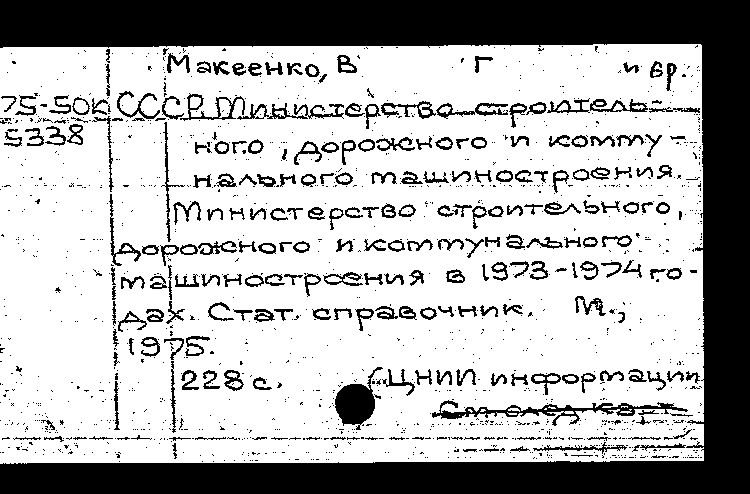 Макеенко, В Г и др.
75-50к СССР. Министерство строитель-
5338 ного, дорожного и комму-
нального машиностроения.
Министерство строительного,
дорожного и коммунального
машиностроения в 1973-1974 го-
дах. Стат. справочник. М.,
1975.
228 с. (ЦНИИ информации
См след карт